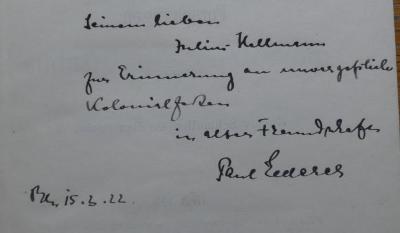 Seinem lieben
Julius Hellmann
zur Erinnerung an unvergeßliche
in alter Freundschaft
Paul Lederer
Bln. 15.3.22.